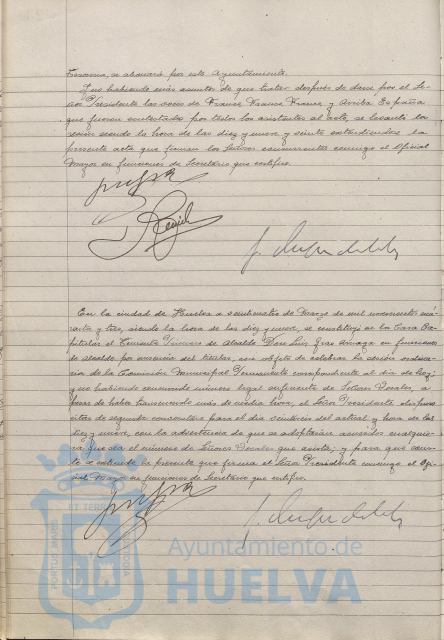 Tesorería, se abonará por este Ayuntamiento.
Y no habiendo más asuntos de que tratar después de darse por el Se-
ñor Presidente las voces de Franco Franco Franco y Arriba España
que fueron contestadas por todos los asistentes al acto, se levantó la
sesión siendo la hora de las diez y nueve y veinte extendiéndose la
presente acta que firman los Señores concurrentes conmigo el Oficial
Mayor en funciones de Secretario que certifico.
En la ciudad de Huelva a veinticuatro de Marzo de mil novecientos cua-
renta y tres, siendo la hora de las diez y nueve, se constituyó en la Casa Ca-
pitular el Teniente Primero de Alcalde Don Luis en funciones
de Alcalde por ausencia del titular, con objeto de celebrar la sesión ordina-
ria de la Comisión Municipal Permanente correspondiente al día de hoy;
y no habiendo concurrido número legal suficiente de Señores Vocales, a
pesar de haber transcurrido más de media hora, el Señor Presidente dispuso
citar de segunda convocatoria para el día veintiseis del actual y hora de las
diez y nueve, con la advertencia de que se adoptarían acuerdos cualquie-
ra que sea el número de Señores Vocales que asista; y para que cons-
te se extiende la presente que firma el Señor Presidente conmigo el Ofi-
cial Mayor en funciones de Secretario que certifico.
Ayuntamiento de
HUELVA